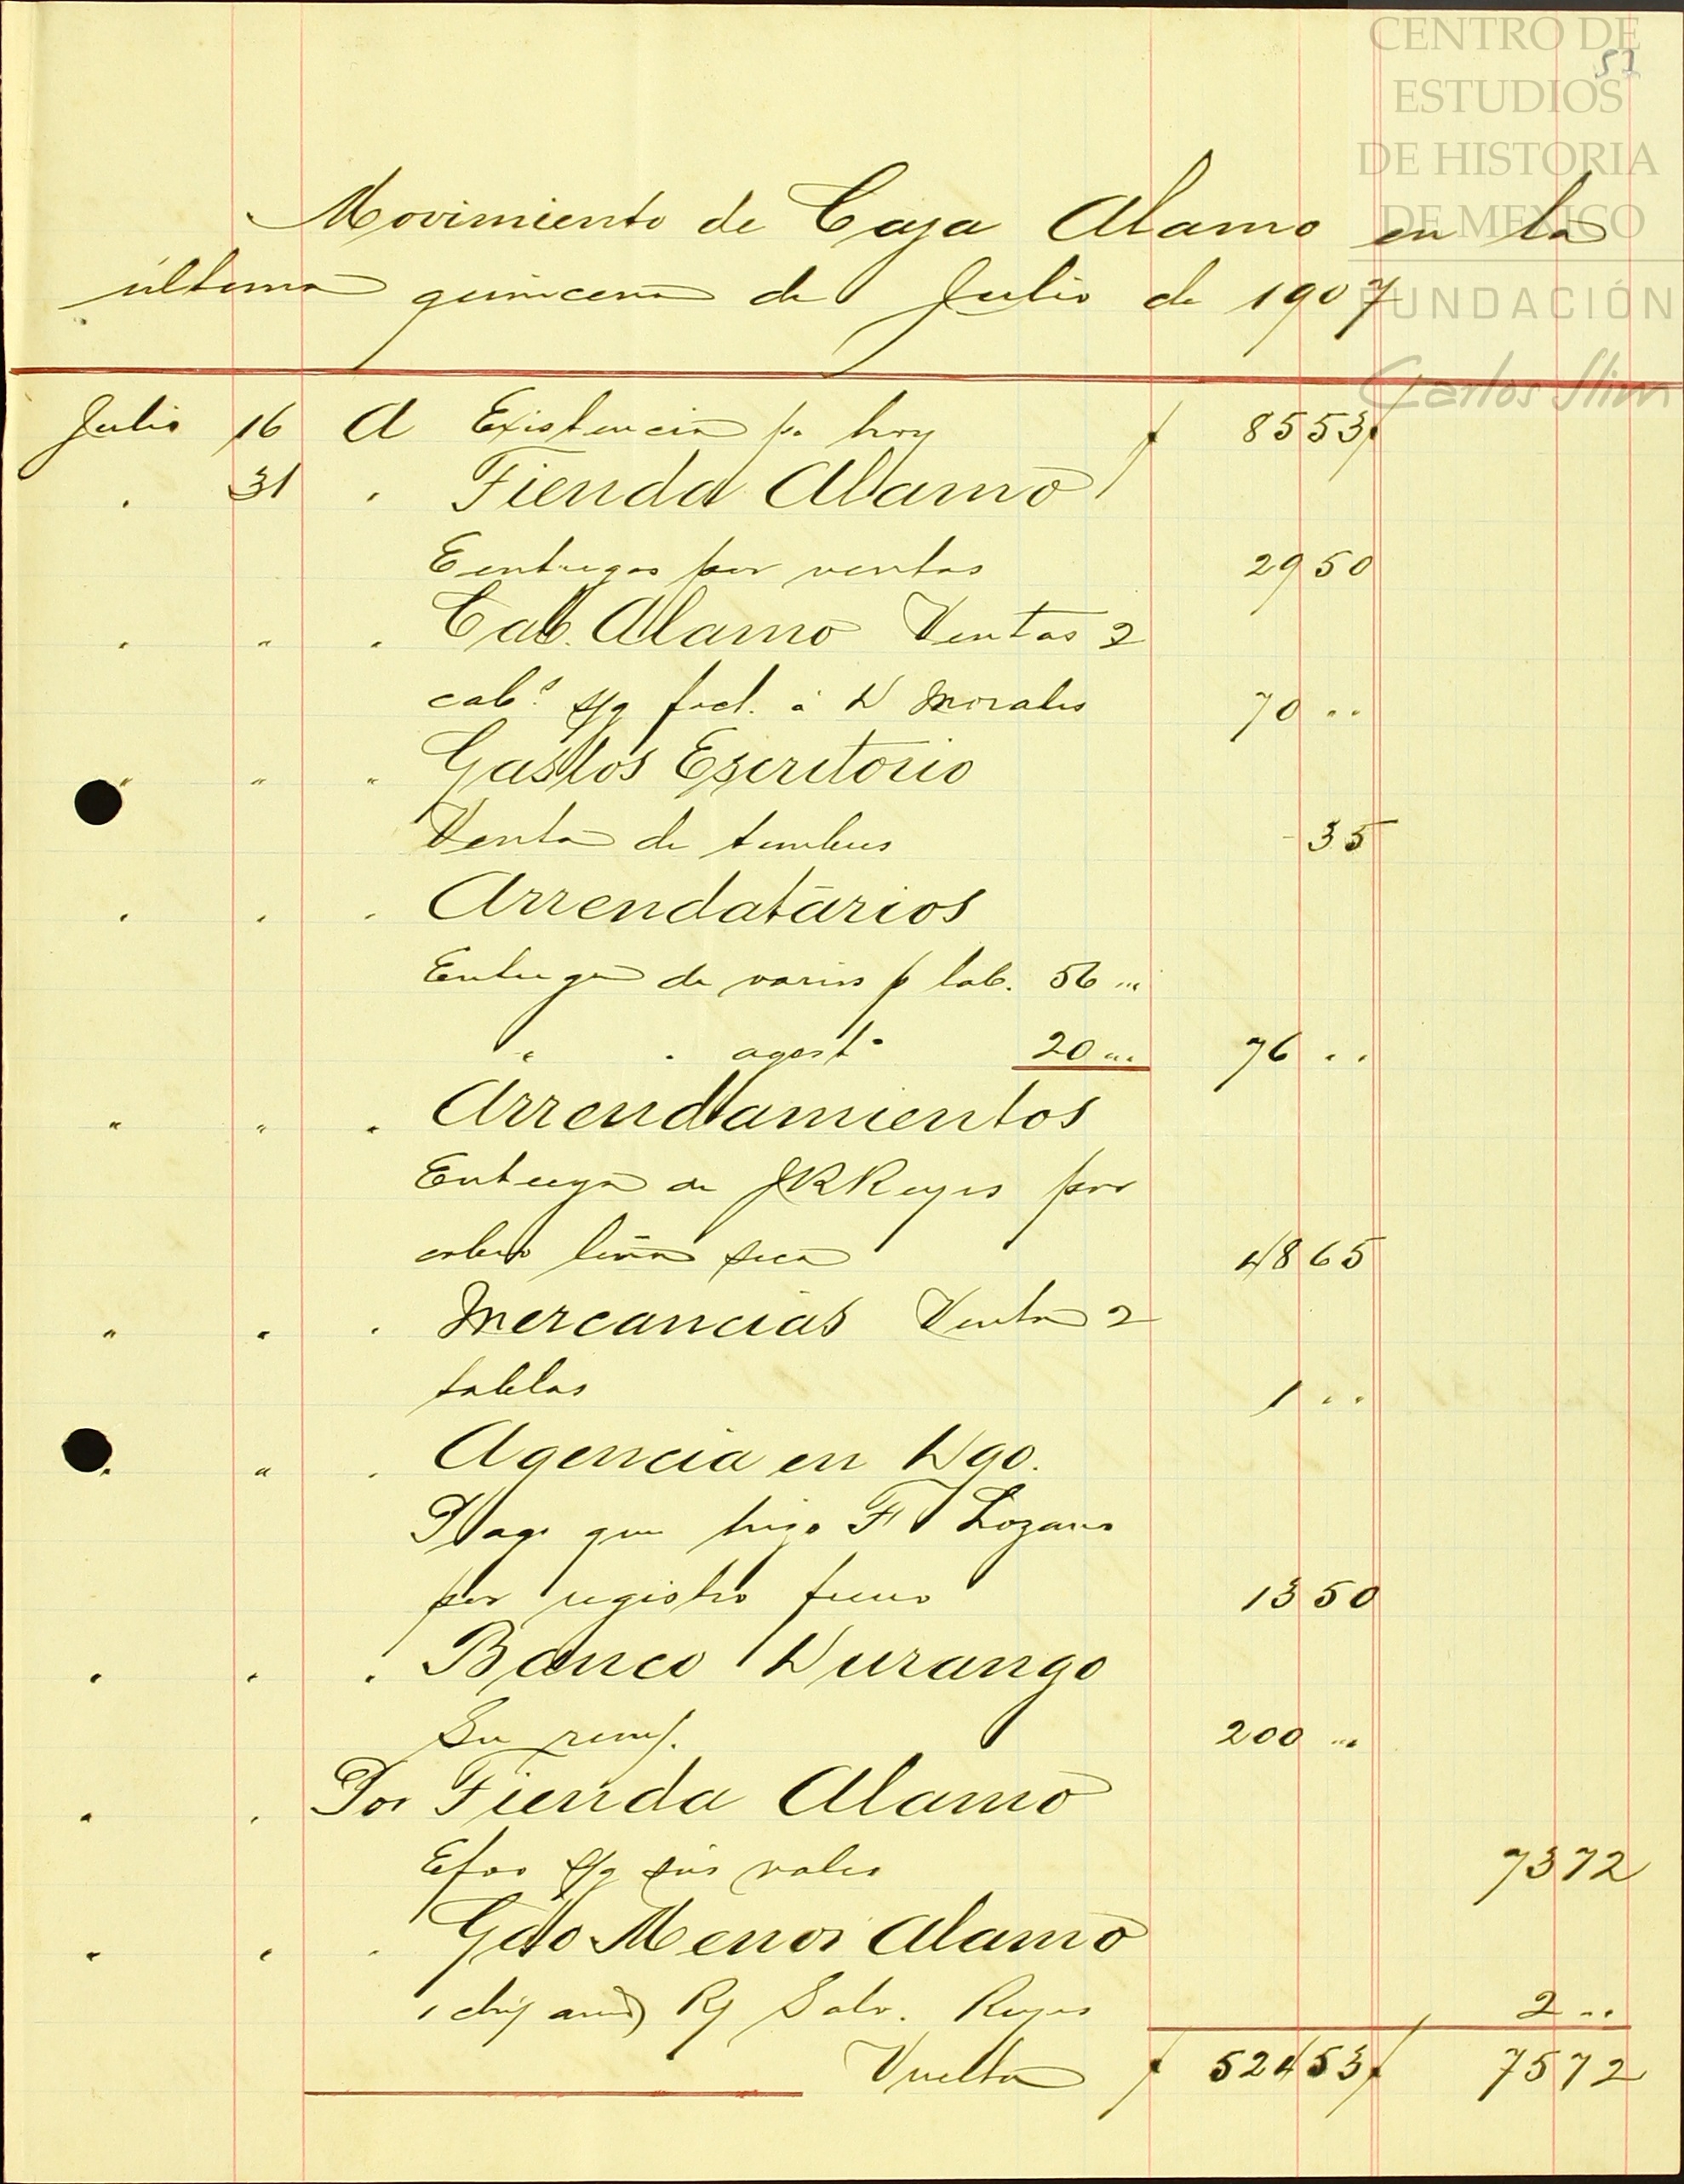 CENTRO DE
ESTUDIOS
DE HISTORIA
DE MEXICO
FUNDACIÓN
Carlos Slim
Movimiento de Caja Alamo en la
última quincena de Julio de 1907
Julio 16 A Existencia pa hoy $ 85 53 $
" 31 " Tienda Alamo
Eentregas por ventas 29 50
" " " Cab. Alamo Ventas 2
cabs s/g fact. á D Morales 70 ..
" " " Gastos Escritorio
Venta de timbres - 35
" " " Arrendatarios
Entrega de varios p lab. 56 ...
" " agost° 20 ... 76 ..
" " " Arrendamientos
Entrega de JRReyes por
cobro leña seca 48 65
" " " Mercancias Venta 2
tablas 1 ..
" " " Agencia en Dgo.
Pago que hizo F Lozano
por registro 13 50
" " " Banco Durango
Su rem/. 200 ...
" " Por Tienda Alamo
Efvo s/g sus vales 73 72
" " " Gdo Menor Alamo
1 Rf Salv. Reyes 2 ..
Vuelta $ 524 53 $ 75 72